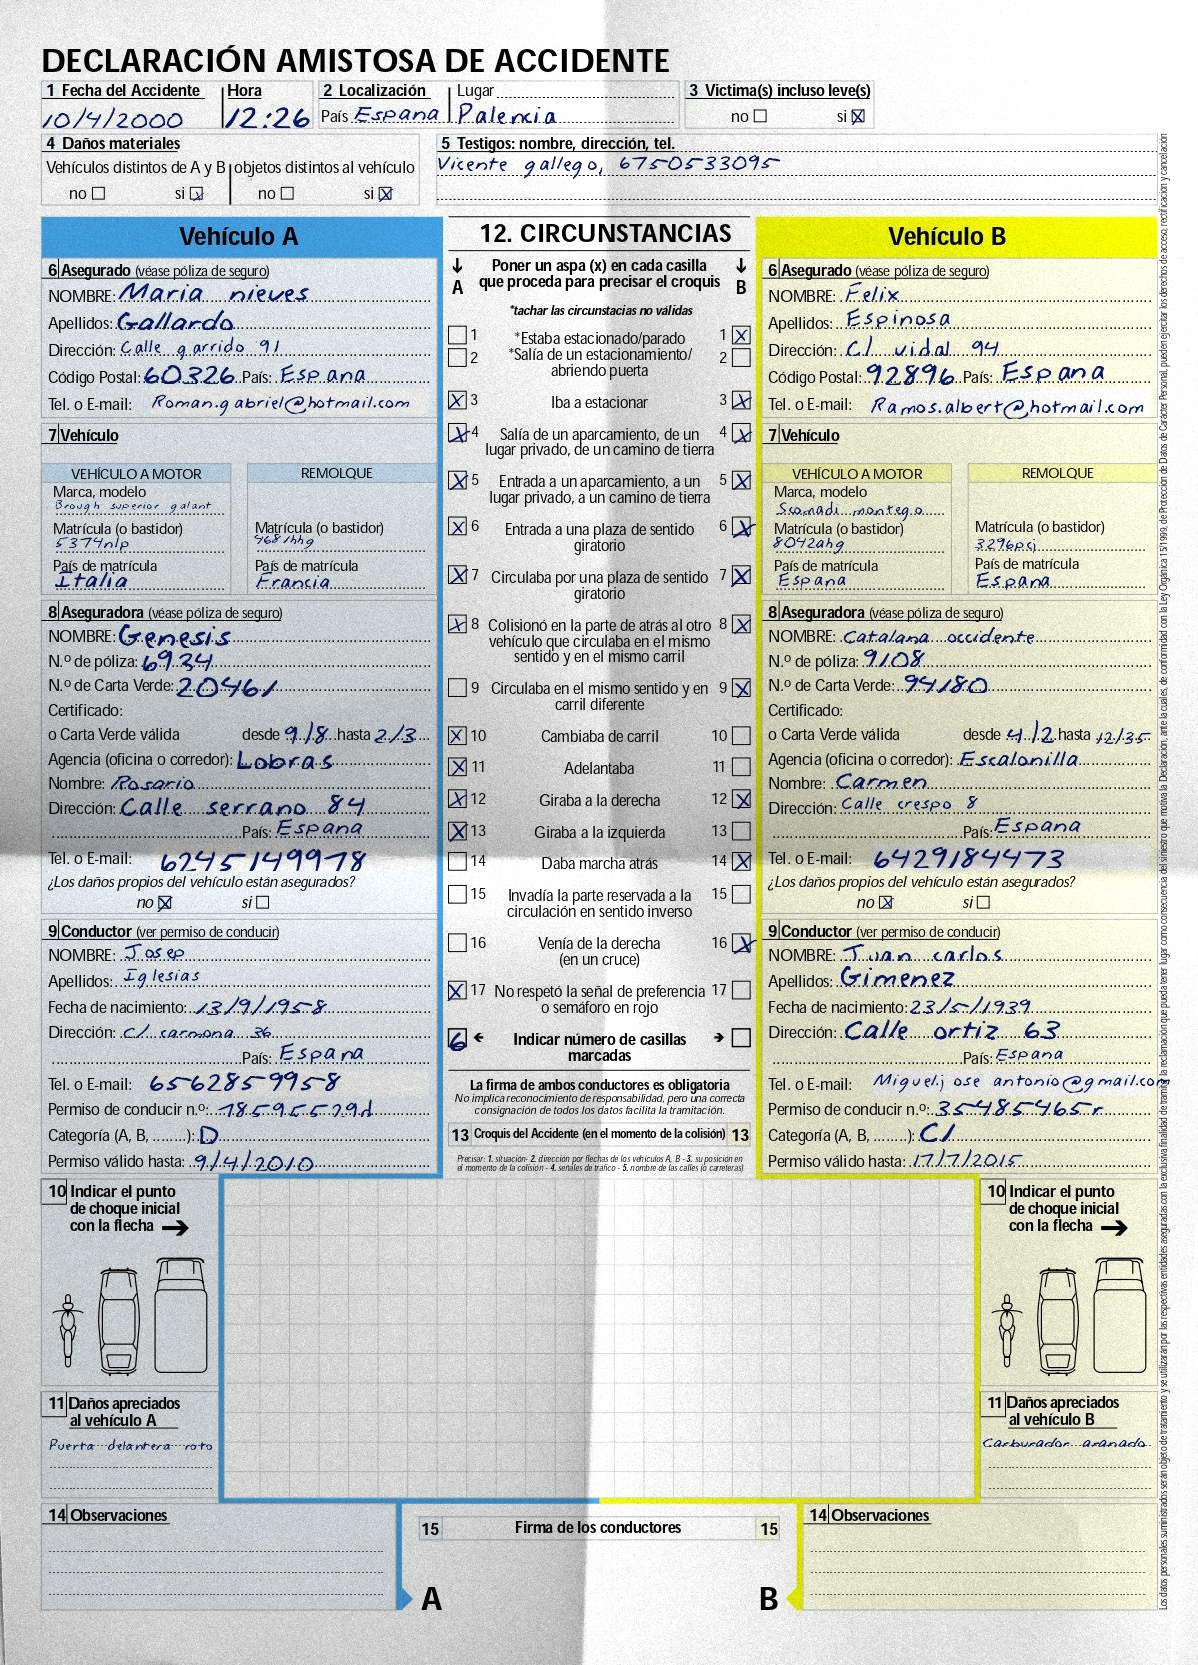 DECLARACIÓN AMISTOSA DE ACCIDENTE
1 Fecha del Accidente Hora 2 Localización Lugar 3 Victima(s) incluso leve(s)
10/4/2000 12:26 País Espana Palencia no si X
4 Daños materiales 5 Testigos: nombre, dirección, tel.
Vehículos distintos de A y B objetos distintos al vehículo Vicente gallego, 6750533095
no si X no si X
Vehículo A
6 Asegurado (véase póliza de seguro)
NOMBRE: Maria nieves
Apellidos: Gallardo
Dirección: Calle garrido 91
Código Postal: 60326 País: Espana
Tel. o E-mail: Roman.gabriel@hotmail.com
7 Vehículo
VEHÍCULO A MOTOR REMOLQUE
Marca, modelo
Brough superior galant
Matrícula (o bastidor) Matrícula (o bastidor)
5374nlp 4681hhg
País de matrícula País de matrícula
Italia Francia
8 Aseguradora (véase póliza de seguro)
NOMBRE: Genesis
N.º de póliza: 6934
N.º de Carta Verde: 20461
Certificado:
o Carta Verde válida desde 9/8 hasta 2/3
Agencia (oficina o corredor): Lobras
Nombre: Rosario
Dirección: Calle serrano 84
País: Espana
Tel. o E-mail: 6245149978
¿Los daños propios del vehículo están asegurados?
no X si
9 Conductor (ver permiso de conducir)
NOMBRE: Josep
Apellidos: Iglesias
Fecha de nacimiento: 13/9/1958
Dirección: C/ carmona 36
País: Espana
Tel. o E-mail: 6562859958
Permiso de conducir n.º: 78595529d
Categoría (A, B, ........): D
Permiso válido hasta: 9/4/2010
10 Indicar el punto
de choque inicial
con la flecha
11 Daños apreciados
al vehículo A
Puerta delantera roto
14 Observaciones
12. CIRCUNSTANCIAS
A Poner un aspa (x) en cada casilla B
que proceda para precisar el croquis
*tachar las circunstacias no válidas
1 *Estaba estacionado/parado 1 X
2 *Salía de un estacionamiento/ 2
abriendo puerta
X 3 Iba a estacionar 3 X
X 4 Salía de un aparcamiento, de un 4 X
lugar privado, de un camino de tierra
X 5 Entrada a un aparcamiento, a un 5 X
lugar privado, a un camino de tierra
X 6 Entrada a una plaza de sentido 6 X
giratorio
X 7 Circulaba por una plaza de sentido 7 X
giratorio
X 8 Colisionó en la parte de atrás al otro 8 X
vehículo que circulaba en el mismo
sentido y en el mismo carril
9 Circulaba en el mismo sentido y en 9 X
carril diferente
X 10 Cambiaba de carril 10
X 11 Adelantaba 11
X 12 Giraba a la derecha 12 X
X 13 Giraba a la izquierda 13
14 Daba marcha atrás 14 X
15 Invadía la parte reservada a la 15
circulación en sentido inverso
16 Venía de la derecha 16 X
(en un cruce)
X 17 No respetó la señal de preferencia 17
o semáforo en rojo
6 Indicar número de casillas
marcadas
La firma de ambos conductores es obligatoria
No implica reconocimiento de responsabilidad, pero una correcta
consignación de todos los datos facilita la tramitación.
13 Croquis del Accidente (en el momento de la colisión) 13
Precisar: 1. situación- 2. dirección por flechas de los vehículos A, B - 3. su posición en
el momento de la colisión - 4. señales de tráfico - 5. nombre de las calles (o carreteras)
15 Firma de los conductores 15
A B
Vehículo B
6 Asegurado (véase póliza de seguro)
NOMBRE: Felix
Apellidos: Espinosa
Dirección: C/ vidal 94
Código Postal: 92896 País: Espana
Tel. o E-mail: Ramos.albert@hotmail.com
7 Vehículo
VEHÍCULO A MOTOR REMOLQUE
Marca, modelo
Scomadi montego
Matrícula (o bastidor) Matrícula (o bastidor)
8042ahg 3296pcj
País de matrícula País de matrícula
Espana Espana
8 Aseguradora (véase póliza de seguro)
NOMBRE: Catalana occidente
N.º de póliza: 9108
N.º de Carta Verde: 94180
Certificado:
o Carta Verde válida desde 4/2 hasta 12/35
Agencia (oficina o corredor): Escalonilla
Nombre: Carmen
Dirección: Calle crespo 8
País: Espana
Tel. o E-mail: 6429184473
¿Los daños propios del vehículo están asegurados?
no X si
9 Conductor (ver permiso de conducir)
NOMBRE: Juan carlos
Apellidos: Gimenez
Fecha de nacimiento: 23/5/1939
Dirección: Calle ortiz 63
País: Espana
Tel. o E-mail: Miguel.jose antonio@gmail.com
Permiso de conducir n.º: 35485465r
Categoría (A, B, ........): C1
Permiso válido hasta: 17/7/2015
10 Indicar el punto
de choque inicial
con la flecha
11 Daños apreciados
al vehículo B
Carburador aranado
14 Observaciones